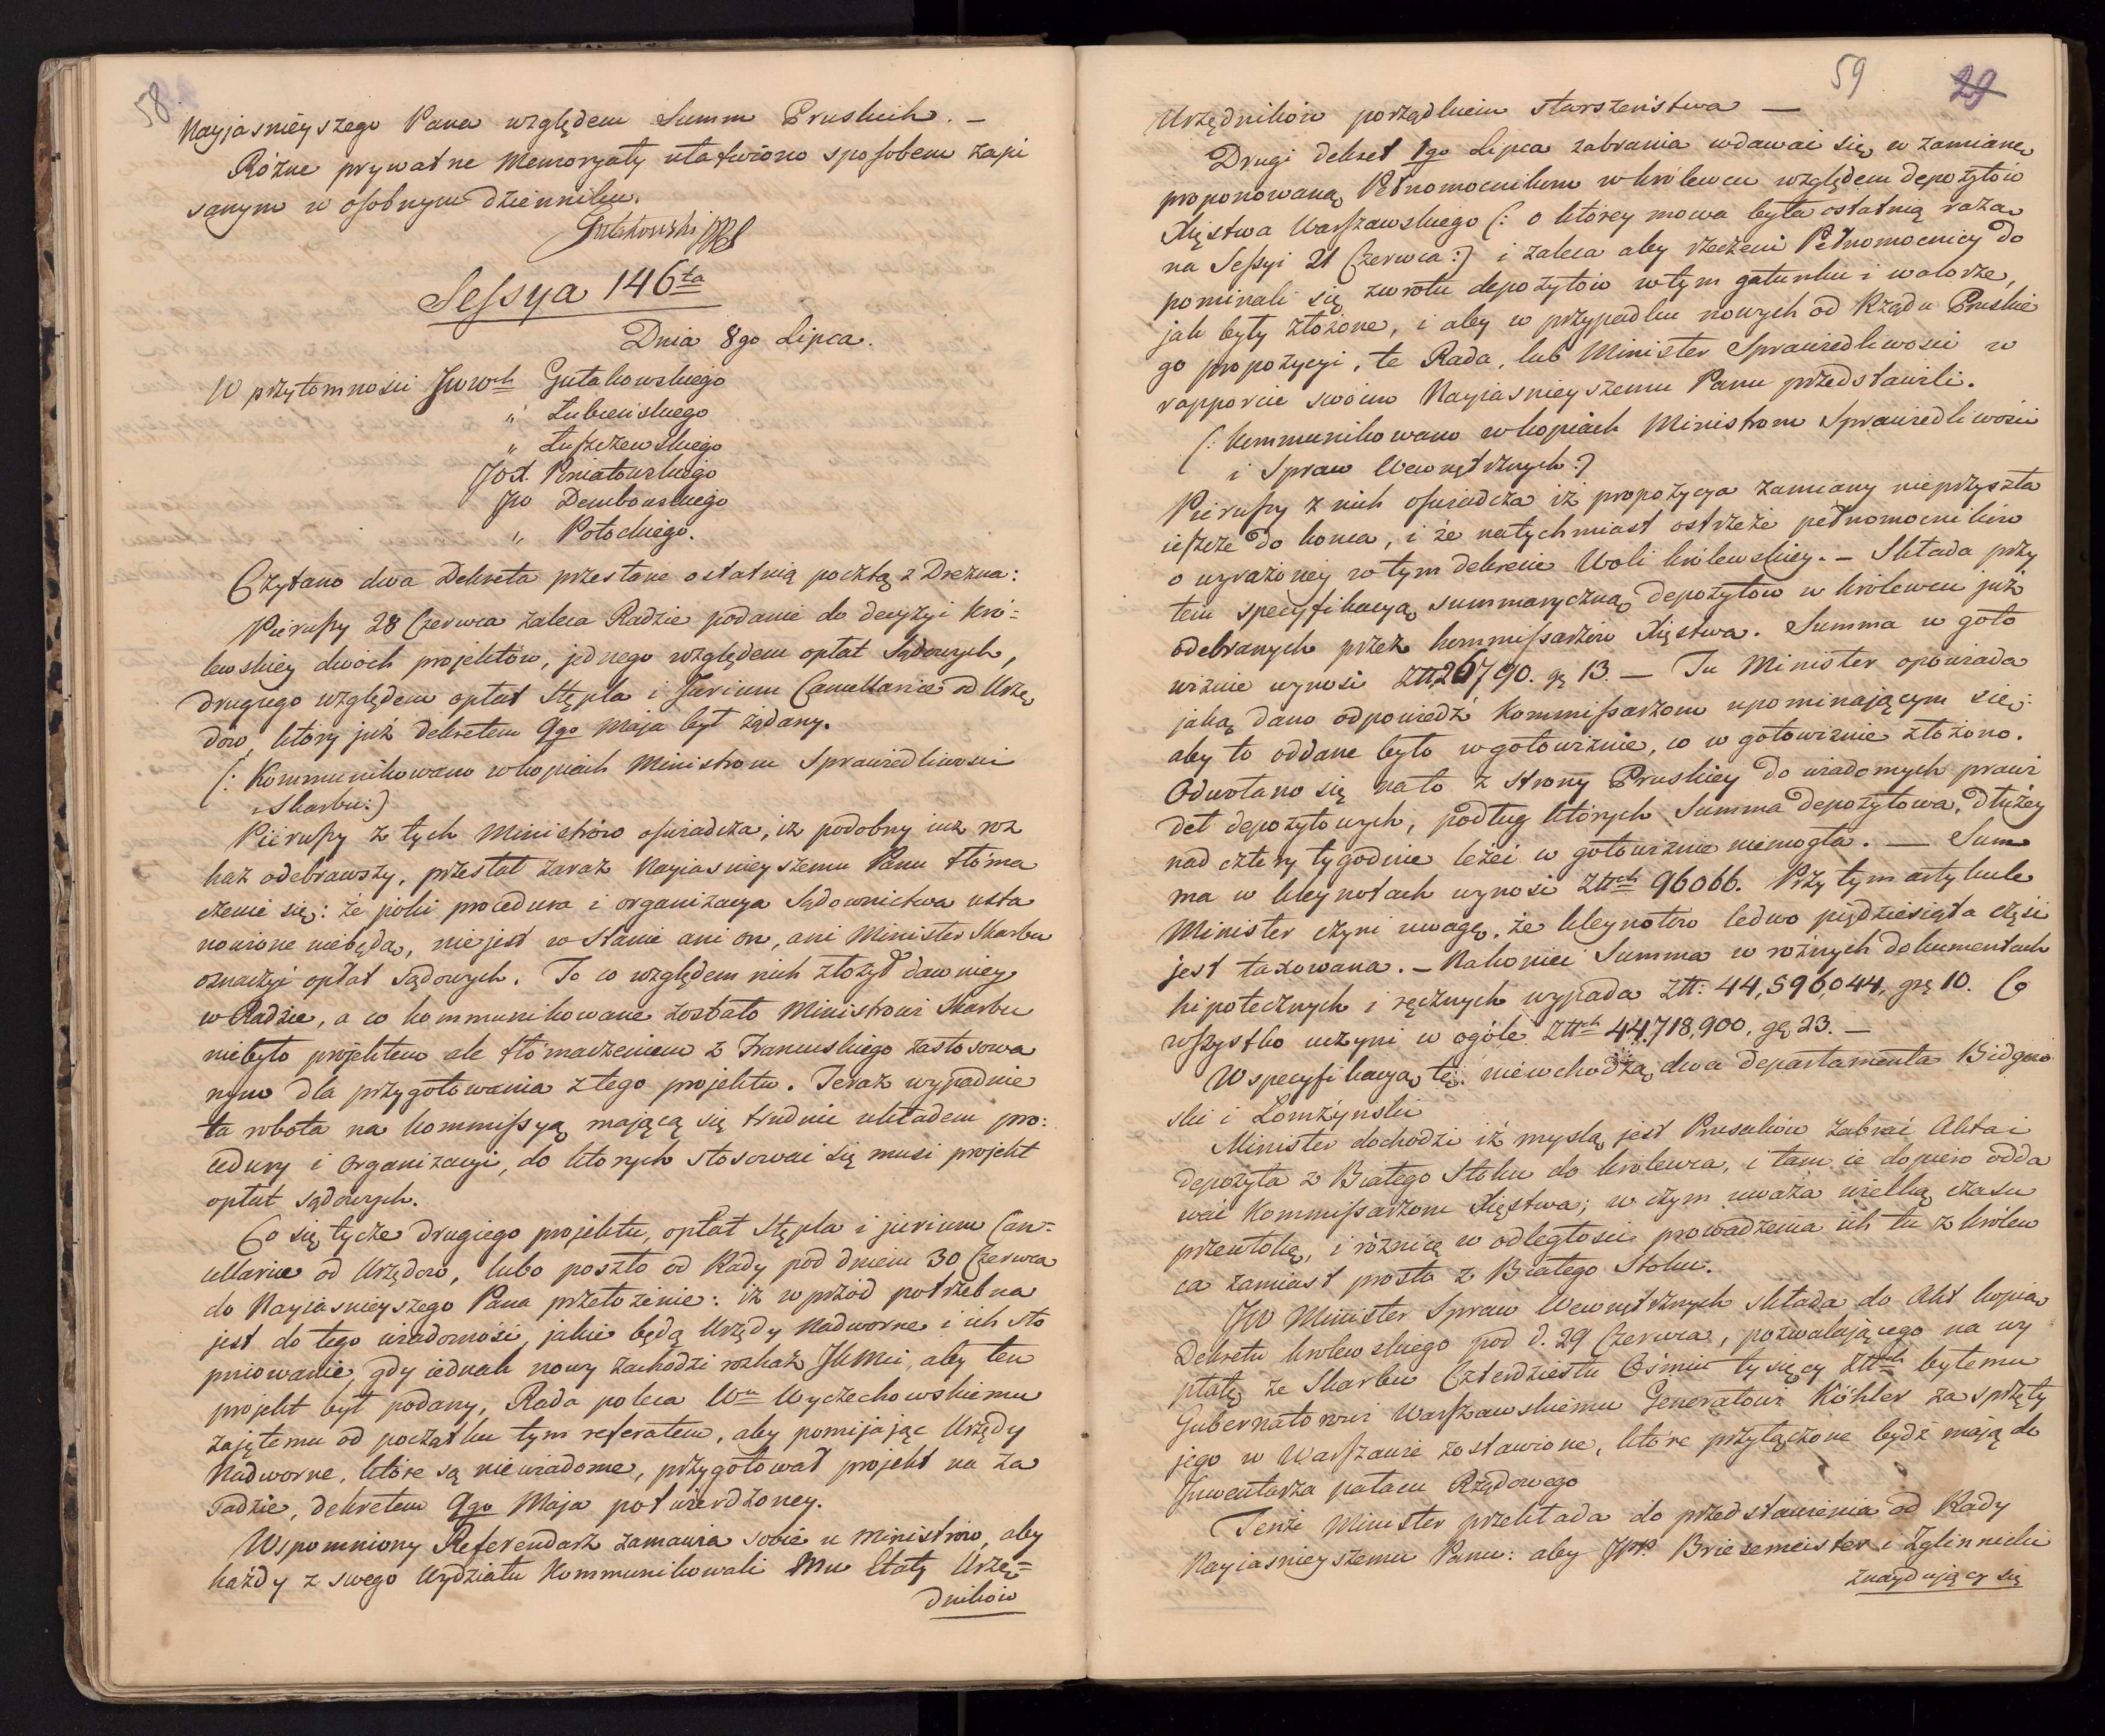 58
Nayjasnieyszego Pana względem Summ Pruskich. —
Różne prywatne Memoryały ułatwiono sposobem zapi
sanym w osobnym dzienniku.
Gutakowski PRS
Sessya 146ta
Dnia 8go Lipca.
W przytomności JWWch Gutakowskiego
" Łubieńskiego
" Łuszczewskiego
JOX. Poniatowskiego
JW Dembowskiego
" Potockiego.
Czytano dwa Dekreta przesłane ostatnią pocztą z Drezna:
Pierwszy 28 Czerwca zaleca Radzie podanie do decyzyi Kró-
lewskiey dwóch projektów, jednego względem opłat Sądowych,
drugiego względem opłat Stępla i Jurium Cancellariae od Urzę
dów, który już dekretem 9go Maja był żądany.
(: Kommunikowano w kopiach Ministrom Sprawiedliwosci
i Skarbu:)
Pierwszy z tych Ministrów oświadcza, iż podobny iuż roz
kaz odebrawszy, przesłał zaraz Nayiasnieyszemu Panu tłóma
czenie się: że póki procedura i organizacya Sądownictwa usta
nowione niebędą, nie jest w stanie ani on, ani Minister Skarbu
oznaczyć opłat sądowych. To co względem nich złożył dawniey
w Radzie, a co kommunikowane zostało Ministrowi Skarbu
niebyło projektem ale tłómaczeniem z Francuskiego zastosowa
nym dla przygotowania z tego projektu. Teraz wypadnie
ta robota na kommissyą mającą się trudnić układem pro:
cedury i Organizacyi, do których stosować się musi projekt
opłat sądowych.
Co się tycze drugiego projektu, opłat Stępla i jurium Can-
cellariae od Urzędów, lubo poszło od Rady pod dniem 30 Czerwca
do Nayiasnieyszego Pana przełożenie: iż wprzód potrzebna
jest do tego wiadomość, jakie będą Urzędy Nadworne i ich sto
pniowanie, gdy iednak nowy zachodzi rozkaz JKMci, aby ten
projekt był podany, Rada poleca Wmu Wyczechowskiemu
zajętemu od początku tym referatem, aby pomijając Urzędy
Nadworne, które są niewiadome, przygotował projekt na za
sadzie, dekretem 9go Maja potwierdzoney.
Wspomniony Referendarz zamawia sobie u Ministrów, aby
każdy z swego Wydziału Kommunikowali Mu Etaty Urzę=
dników
59
29
Urzędników porządkiem starszeństwa —
Drugi dekret 1go Lipca zabrania wdawać się w zamianę
proponowaną Pełnomocnikom w królewcu względem depozytów
Xięstwa Warszawskiego (: o którey mowa była ostatnią razą
na Sessyi 21 Czerwca:) i zaleca aby rzeczeni Pełnomocnicy do
pominali się zwrotu depozytów w tym gatunku i walorze,
jak były złożone, i aby w przypadku nowych od Rządu Pruskie
go propozycyi, te Rada, lub Minister Sprawiedliwości w
rapporcie swoim Nayiasnieyszemu Panu przedstawili.
(: Kommunikowano w kopiach Ministrom Sprawiedliwości
i Spraw Wewnętrznych:)
Pierwszy z nich oświadcza iż propozycya zamiany nieprzyszła
ieszcze do końca, i że natychmiast ostrzeże pełnomocników
o wyrażoney w tym dekrecie Woli królewskiey. — Składa przy
tem specyfikacyą summaryczną depozytów w królewcu już
odebranych przez kommissarzów Xięstwa. Summa w goto
wiznie wynosi Złł 26790. gr 13. — Tu Minister opowiada
jaką dano odpowiedź Kommissarzom upominającym się:
aby to oddane było w gotowiznie, co w gotowiznie złożono.
Odwołano się na to z strony Pruskiey do wiadomych prawi
deł depozytowych, podług których Summa depozytowa, dłużey
nad cztery tygodnie leżeć w gotowiznie niemogła. — Sum
ma w kleynotach wynosi Złłch 96066. Przy tym artykule
Minister czyni uwagę, że kleynotów ledwo piędziesiąta część
jest taxowana. — Nakoniec Summa w różnych dokumentach
hipotecznych i ręcznych wypada Złł: 44,596,044, grę 10. Co
wszystko uczyni w ogóle Złłch 44,718,900, gr 23. —
W specyfikacyą tę niewchodzą dwa departamenta Bidgo
ski i Lomżynski
Minister dochodzi iż myslą jest Prusaków zabrać Akta i
depozyta z Białego Stoku do królewca, i tam ie dopiero odda
wać Kommissarzom Xięstwa; w czym uważa wielką czasu
przewłokę, i różnicę w odległości prowadzenia ich tu z królew
ca zamiast prosto z Białego Stoku.
JW Minister Spraw Wewnętrznych składa do Akt kopią
Dekretu królewskiego pod d. 29 Czerwca, pozwalającego na wy
płatę ze Skarbu Czterdziestu Ośmiu tysięcy Złłch byłemu
Gubernatorowi Warszawskiemu Generałowi Köhler za sprzęty
jego w Warszawie zostawione, które przyłączone bydź mają do
Inwentarza pałacu Rządowego
Tenże Minister przekłada do przedstawienia od Rady
Nayiasnieyszemu Panu: aby JPP. Briesemeister i Zglinnicki
znaydujący się